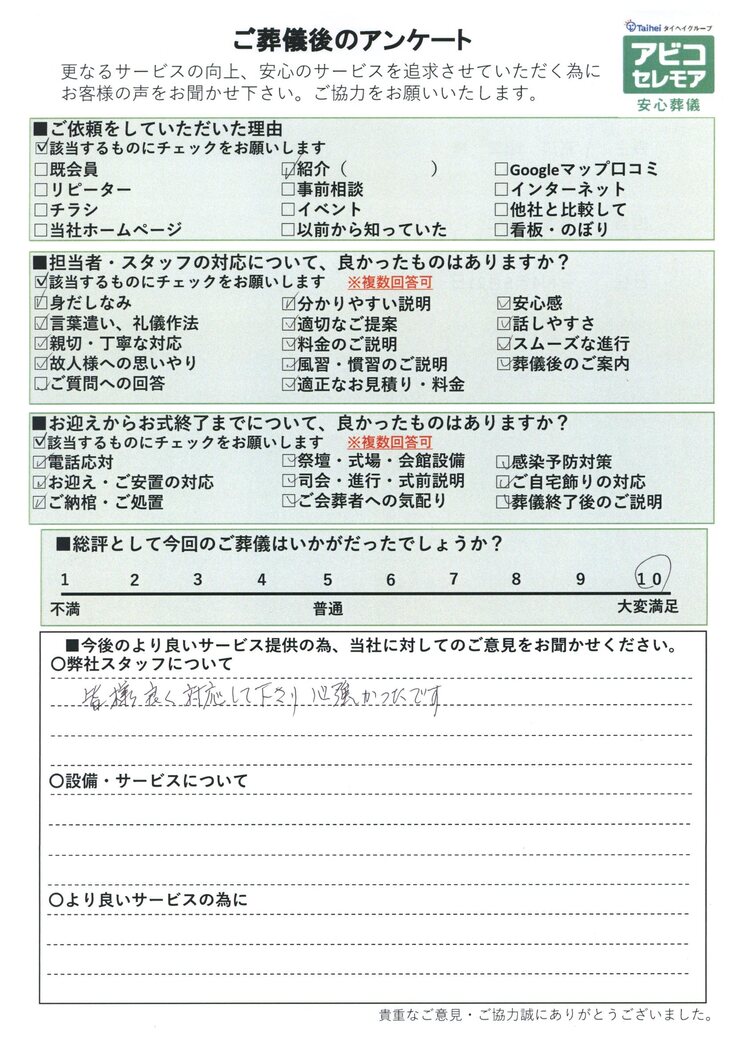 ご葬儀後のアンケート
Taihei タイヘイグループ
アビコ
セレモア
安心葬儀
更なるサービスの向上、安心のサービスを追求させていただく為に
お客様の声をお聞かせ下さい。ご協力をお願いいたします。
■ご依頼をしていただいた理由
☑該当するものにチェックをお願いします
□既会員 ☑紹介（ ） □Googleマップ口コミ
□リピーター □事前相談 □インターネット
□チラシ □イベント □他社と比較して
□当社ホームページ □以前から知っていた □看板・のぼり
■担当者・スタッフの対応について、良かったものはありますか？
☑該当するものにチェックをお願いします ※複数回答可
☑身だしなみ ☑分かりやすい説明 ☑安心感
☑言葉遣い、礼儀作法 ☑適切なご提案 ☑話しやすさ
☑親切・丁寧な対応 ☑料金のご説明 ☑スムーズな進行
☑故人様への思いやり ☑風習・慣習のご説明 ☑葬儀後のご案内
☑ご質問への回答 ☑適正なお見積り・料金
■お迎えからお式終了までについて、良かったものはありますか？
☑該当するものにチェックをお願いします ※複数回答可
☑電話応対 ☑祭壇・式場・会館設備 ☑感染予防対策
☑お迎え・ご安置の対応 ☑司会・進行・式前説明 ☑ご自宅飾りの対応
☑ご納棺・ご処置 ☑ご会葬者への気配り ☑葬儀終了後のご説明
■総評として今回のご葬儀はいかがだったでしょうか？
1 2 3 4 5 6 7 8 9 10
不満 普通 大変満足
■今後のより良いサービス提供の為、当社に対してのご意見をお聞かせください。
〇弊社スタッフについて
皆様良く対応して下さり心強かったです
〇設備・サービスについて
〇より良いサービスの為に
貴重なご意見・ご協力誠にありがとうございました。